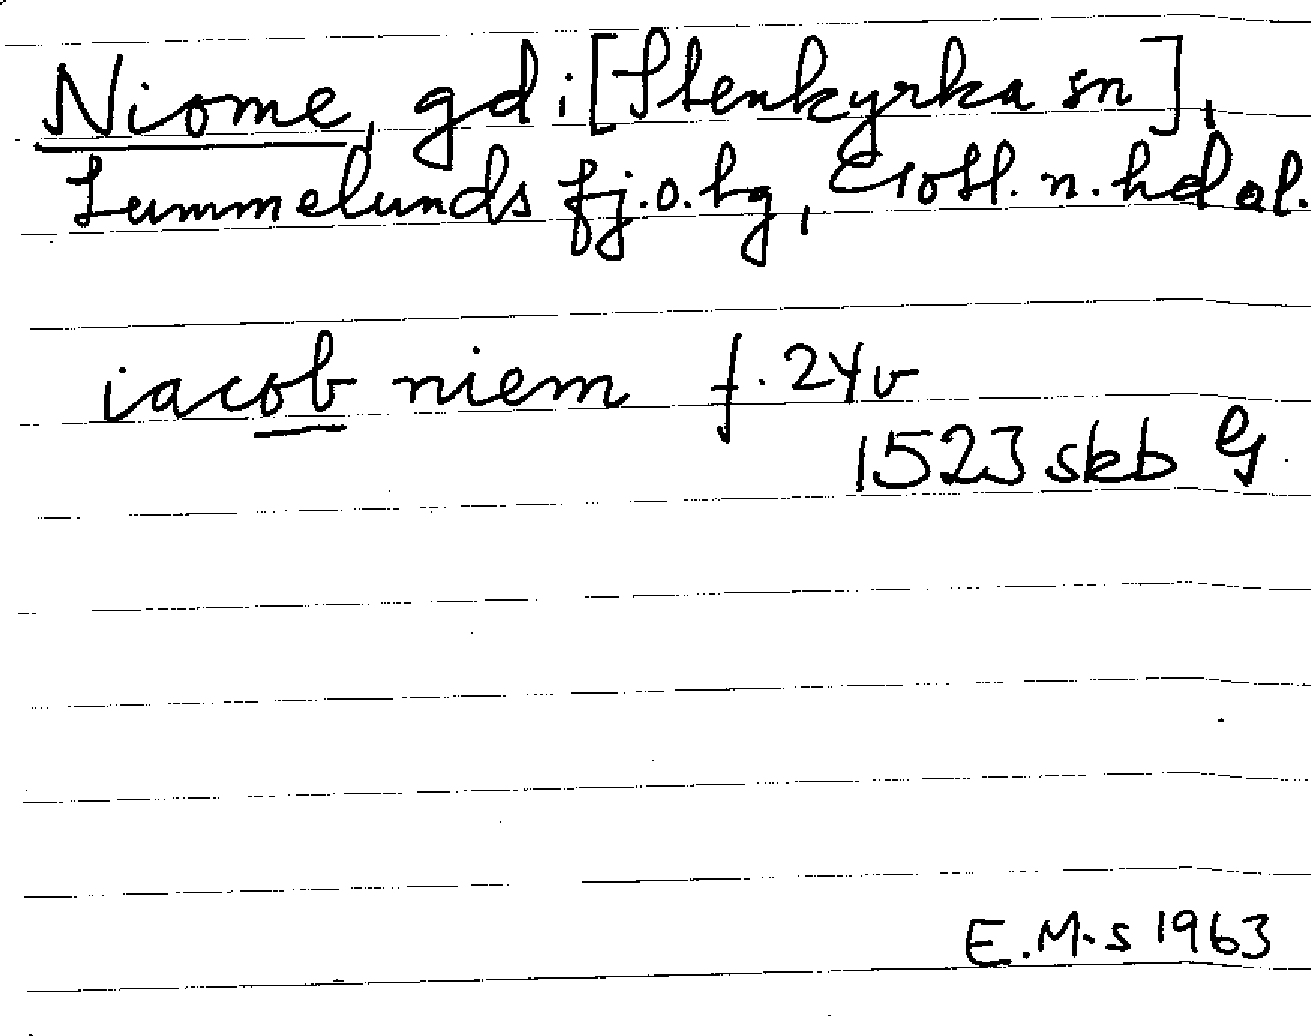 Niome, gd i [Stenkyrka sn],
Lummelunds fj. o. tg, Gotl. n. hd al.
iacob niem f. 24v
1523 skb G
E. M-s 1963